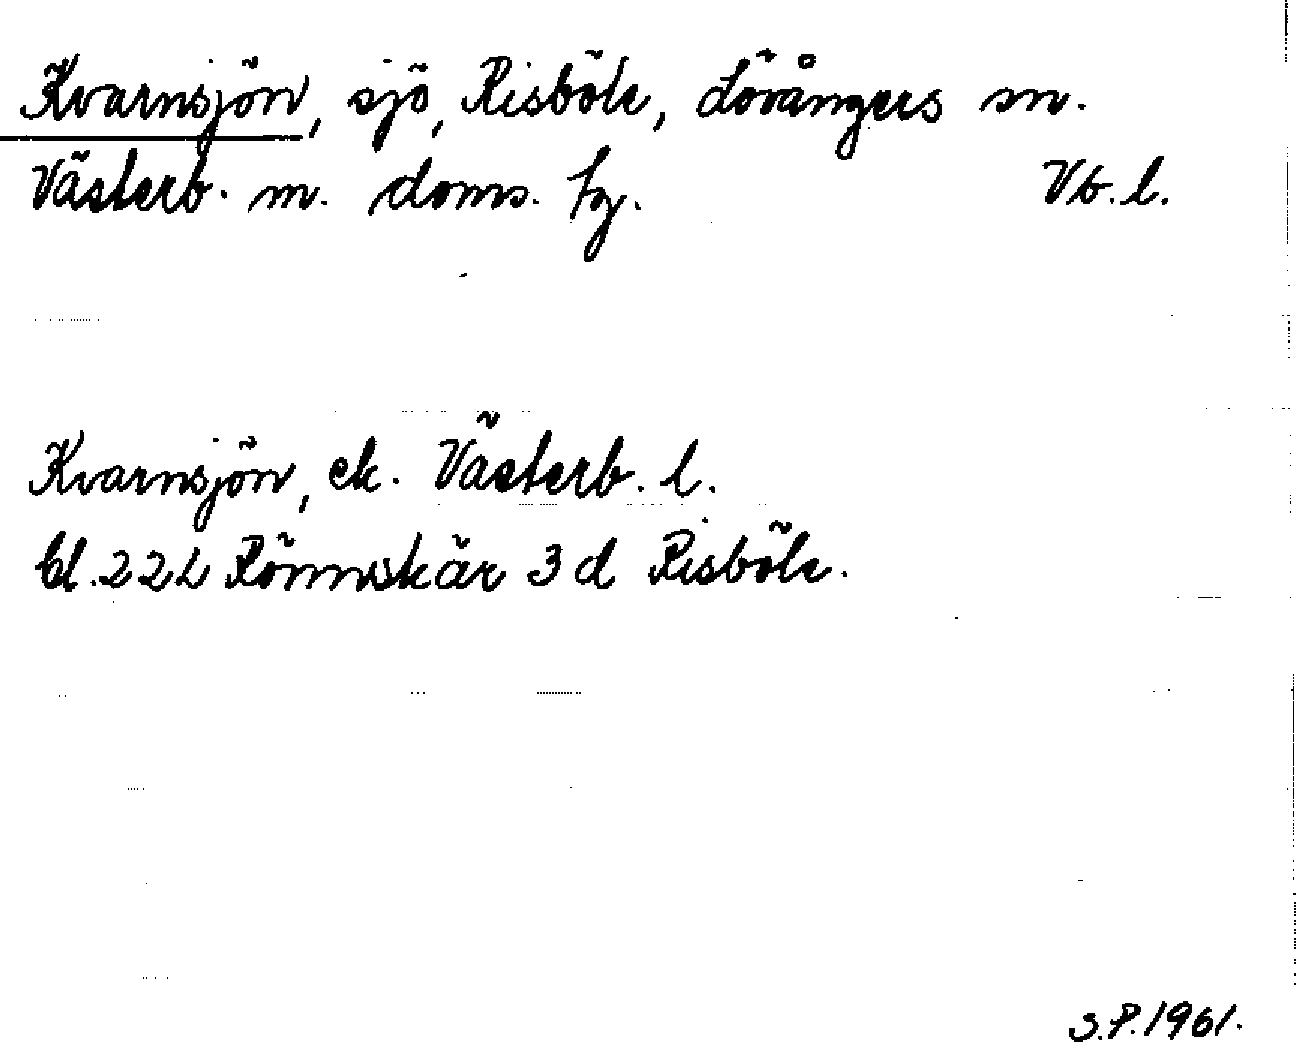 Kvarnsjön, sjö, Risböle, Lövångers sn.
Västerb. m. doms. fg. Vb. l.
Kvarnsjön, ek. Västerb. l.
bl. 22L Rönnskär 3d Risböle.
S.P. 1961.